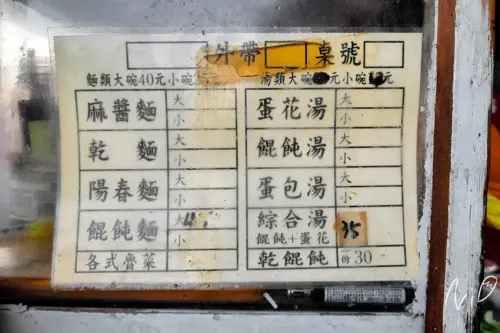 外帶 桌號
麵類大碗40元小碗
湯類大碗 元小碗 元
麻醬麵 大 小
乾麵 大 小
陽春麵 大 小
餛飩麵 大 小
各式魯菜
蛋花湯 大 小
餛飩湯 大 小
蛋包湯 大 小
綜合湯 35
餛飩+蛋花
乾餛飩 份30